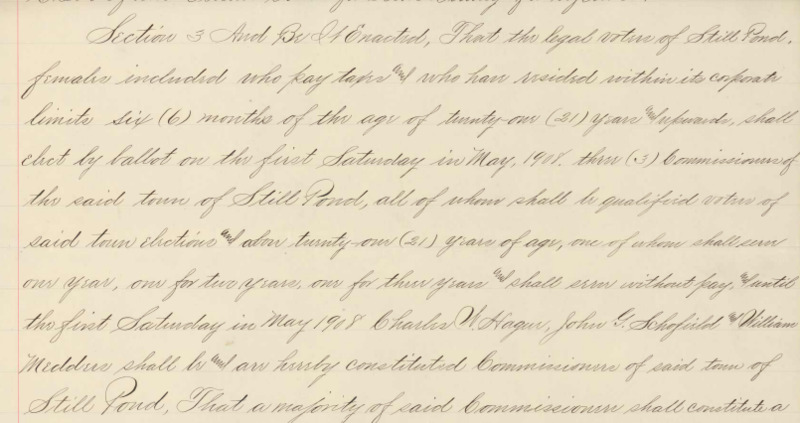 Section 3 And Be It Enacted, That the legal voters of Still Pond,
females included who pay taxes and who have resided within its corporate
limits six (6) months of the age of twenty-one (21) years and upwards, shall
elect by ballot on the first Saturday in May, 1908. three (3) Commissioners of
the said town of Still Pond, all of whom shall be qualified voters of
said town elections and above twenty-one (21) years of age, one of whom shall serve
one year, one for two years, one for three years and shall serve without pay, and until
the first Saturday in May 1908 Charles W. Hager, John G. Schofield and William
Medders shall be and are hereby constituted Commissioners of said town of
Still Pond, That a majority of said Commissioners shall constitute a